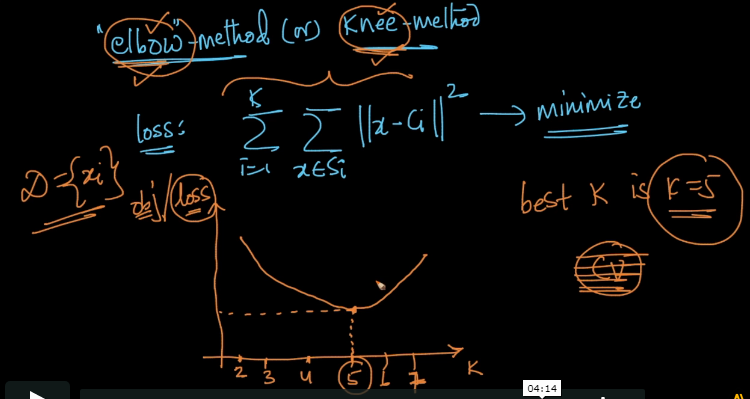 "elbow"-method (or) knee-method
loss: K Σ i=1 Σ x∈Si ||x-Ci||² → minimize
D={xi}
obj/loss
best K is K=5
CV
2 3 4 5 6 7 K
04:14